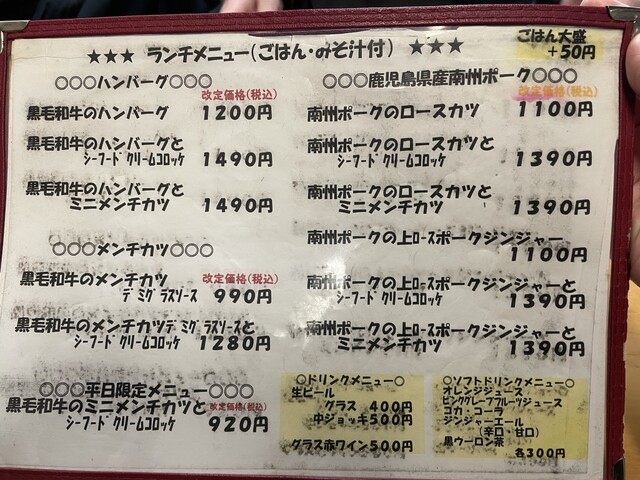 ★★★ ランチメニュー(ごはん・みそ汁付) ★★★
ごはん大盛
+50円
○○○ハンバーグ○○○
改定価格(税込)
黒毛和牛のハンバーグ 1200円
黒毛和牛のハンバーグと
シーフードクリームコロッケ 1490円
黒毛和牛のハンバーグと
ミニメンチカツ 1490円
○○○メンチカツ○○○
黒毛和牛のメンチカツ 改定価格(税込)
デミグラスソース 990円
黒毛和牛のメンチカツデミグラスソースと
シーフードクリームコロッケ 1280円
○○○平日限定メニュー○○○
黒毛和牛のミニメンチカツと 改定価格(税込)
シーフードクリームコロッケ 920円
○○○鹿児島県産南州ポーク○○○
改定価格(税込)
南州ポークのロースカツ 1100円
南州ポークのロースカツと
シーフードクリームコロッケ 1390円
南州ポークのロースカツと
ミニメンチカツ 1390円
南州ポークの上ロースポークジンジャー
1100円
南州ポークの上ロースポークジンジャーと
シーフードクリームコロッケ 1390円
南州ポークの上ロースポークジンジャーと
ミニメンチカツ 1390円
○ドリンクメニュー○
生ビール
グラス 400円
中ジョッキ500円
グラス赤ワイン500円
○ソフトドリンクメニュー○
オレンジジュース
ピンクグレープフルーツジュース
コカ・コーラ
ジンジャーエール
(辛口・甘口)
黒ウーロン茶
各300円